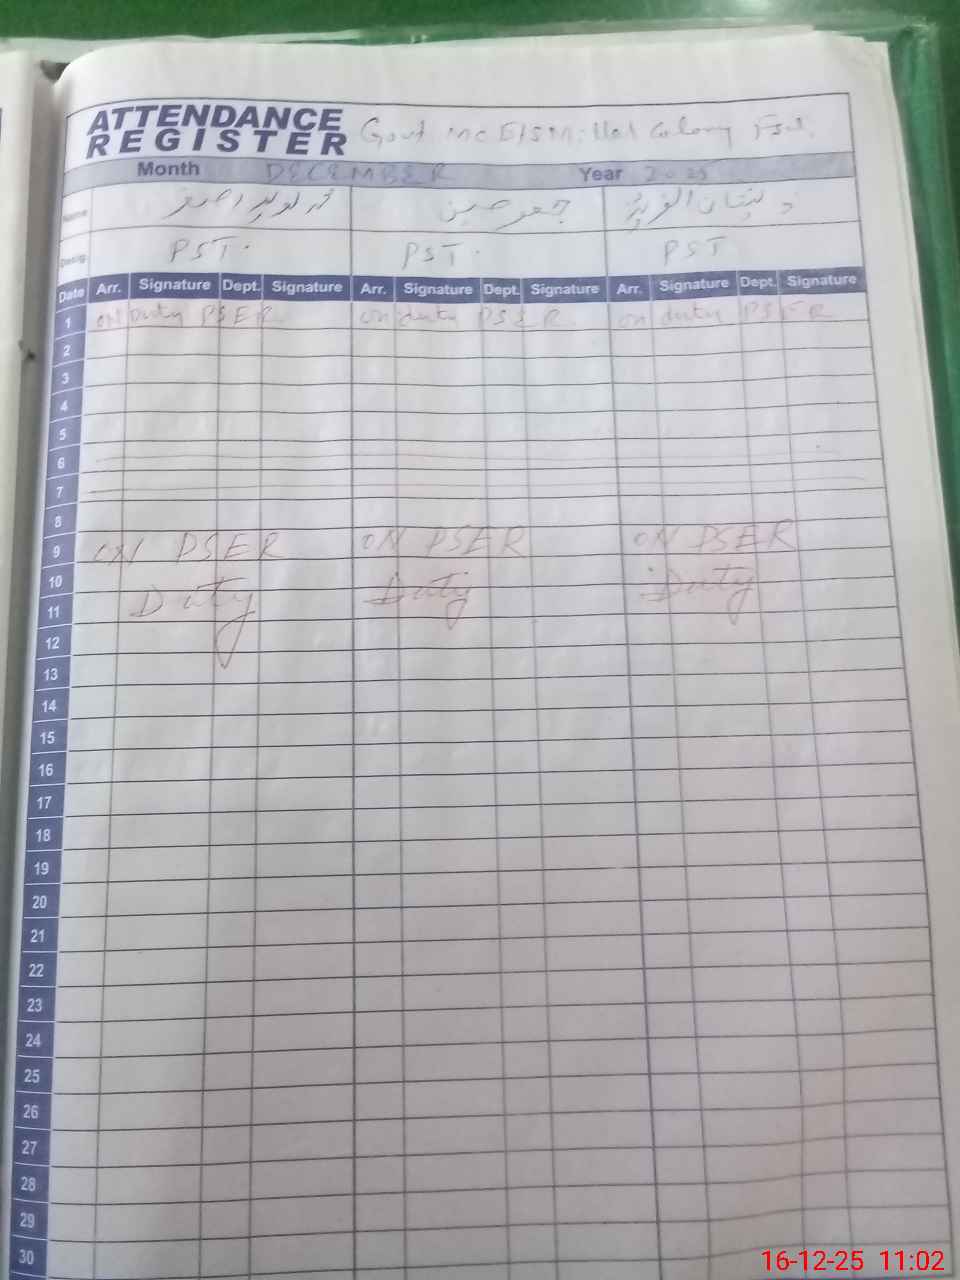 ATTENDANCE REGISTER Govt MC E/S Millat Colony Fsd.
Month DECEMBER Year 2025
Name محمد نوید اصغر جعفر حسین ذیشان العزیز
Desig. PST. PST. PST
Date Arr. Signature Dept. Signature Arr. Signature Dept. Signature Arr. Signature Dept. Signature
1 on Duty PSER on duty PSER on duty PSER
2
3
4
5
6
7
8
9 ON PSER ON PSER ON PSER
10
Duty Duty Duty
11
12
13
14
15
16
17
18
19
20
21
22
23
24
25
26
27
28
29
30
16-12-25 11:02